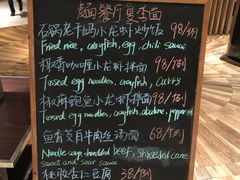 麵餐厅夏季面
石锅老干妈小龙虾炒饭 98/例
Fried rice, crayfish, egg, chili sauce
椒香咖喱小龙虾拌面 98/例
Tossed egg noodles, crayfish, curry
椒麻鲍鱼小龙虾拌面 98/例
Tossed egg noodles, crayfish, abalone, pepper
鱼香茭白牛肉丝汤面 68/例
Noodle soup, shredded beef, shredded cane
sweet and sour sauce
38/例